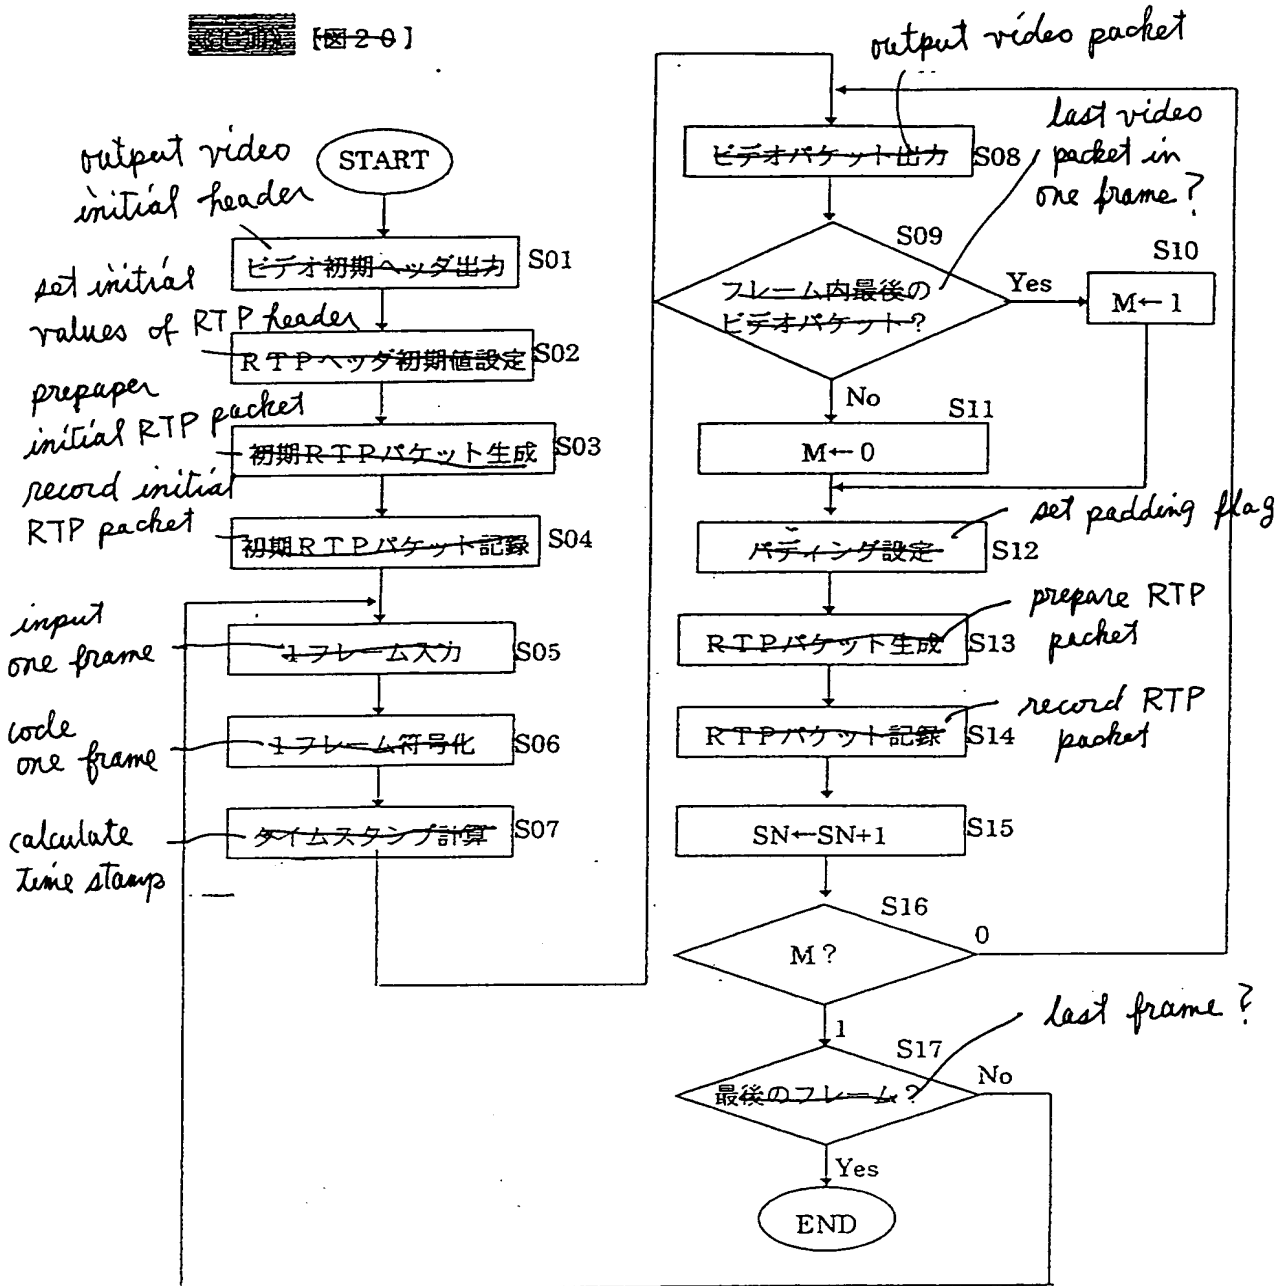 【図20】
START
output video
initial header
ビデオ初期ヘッダ出力 S01
set initial
values of RTP header
RTPヘッダ初期値設定 S02
prepaper
initial RTP packet
初期RTPパケット生成 S03
record initial
RTP packet
初期RTPパケット記録 S04
input
one frame
1フレーム入力 S05
code
one frame
1フレーム符号化 S06
calculate
time stamp
タイムスタンプ計算 S07
output video packet
ビデオパケット出力 S08
last video
packet in
one frame?
S09
フレーム内最後の
ビデオパケット?
Yes
S10
M←1
No
S11
M←0
set padding flag
パディング設定 S12
prepare RTP
packet
RTPパケット生成 S13
record RTP
packet
RTPパケット記録 S14
SN←SN+1 S15
S16
M?
0
1
last frame?
S17
最後のフレーム?
No
Yes
END